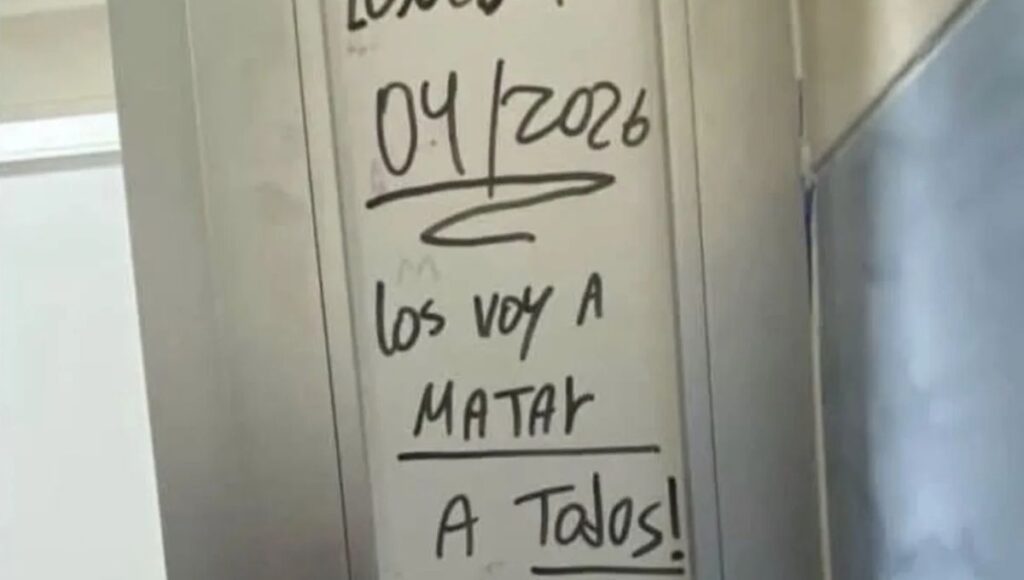 04/2026
los voy A
MATAr
A Todos!